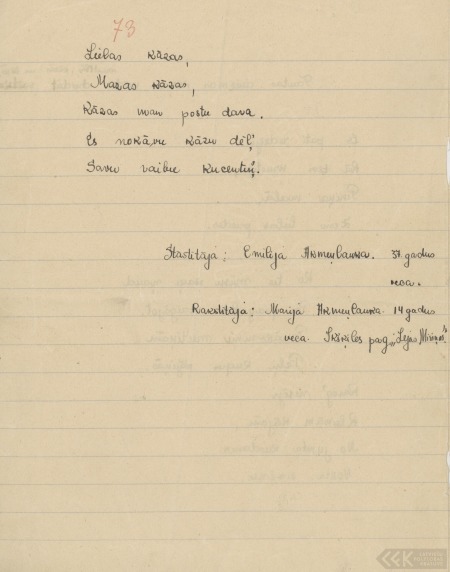 73
Lielas kāzas,
Mazas kāzas,
Kāzas man postu dara.
Es nokāvu kāzu dēļ
Savu vaiļu kucentiņ.
Stāstītāja: Emilija Akmeņlauska. 37. gadus
veca.
Rakstītāja: Marija Akmeņlauska 14 gadus
veca. Ikšķiles pag. „Lejas